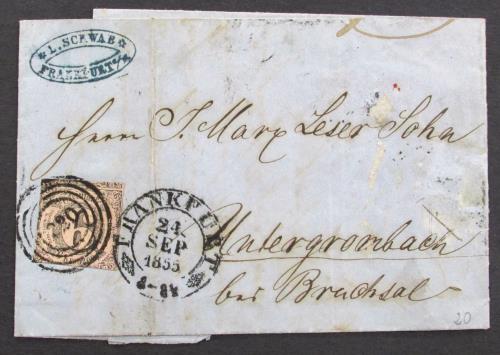 * L. SCHWAB *
FRANKFURT a/M
Herrn J. Marx Leser Sohn
FRANKFURT
24
SEP
1855
Untergrombach
bei Bruchsal
20